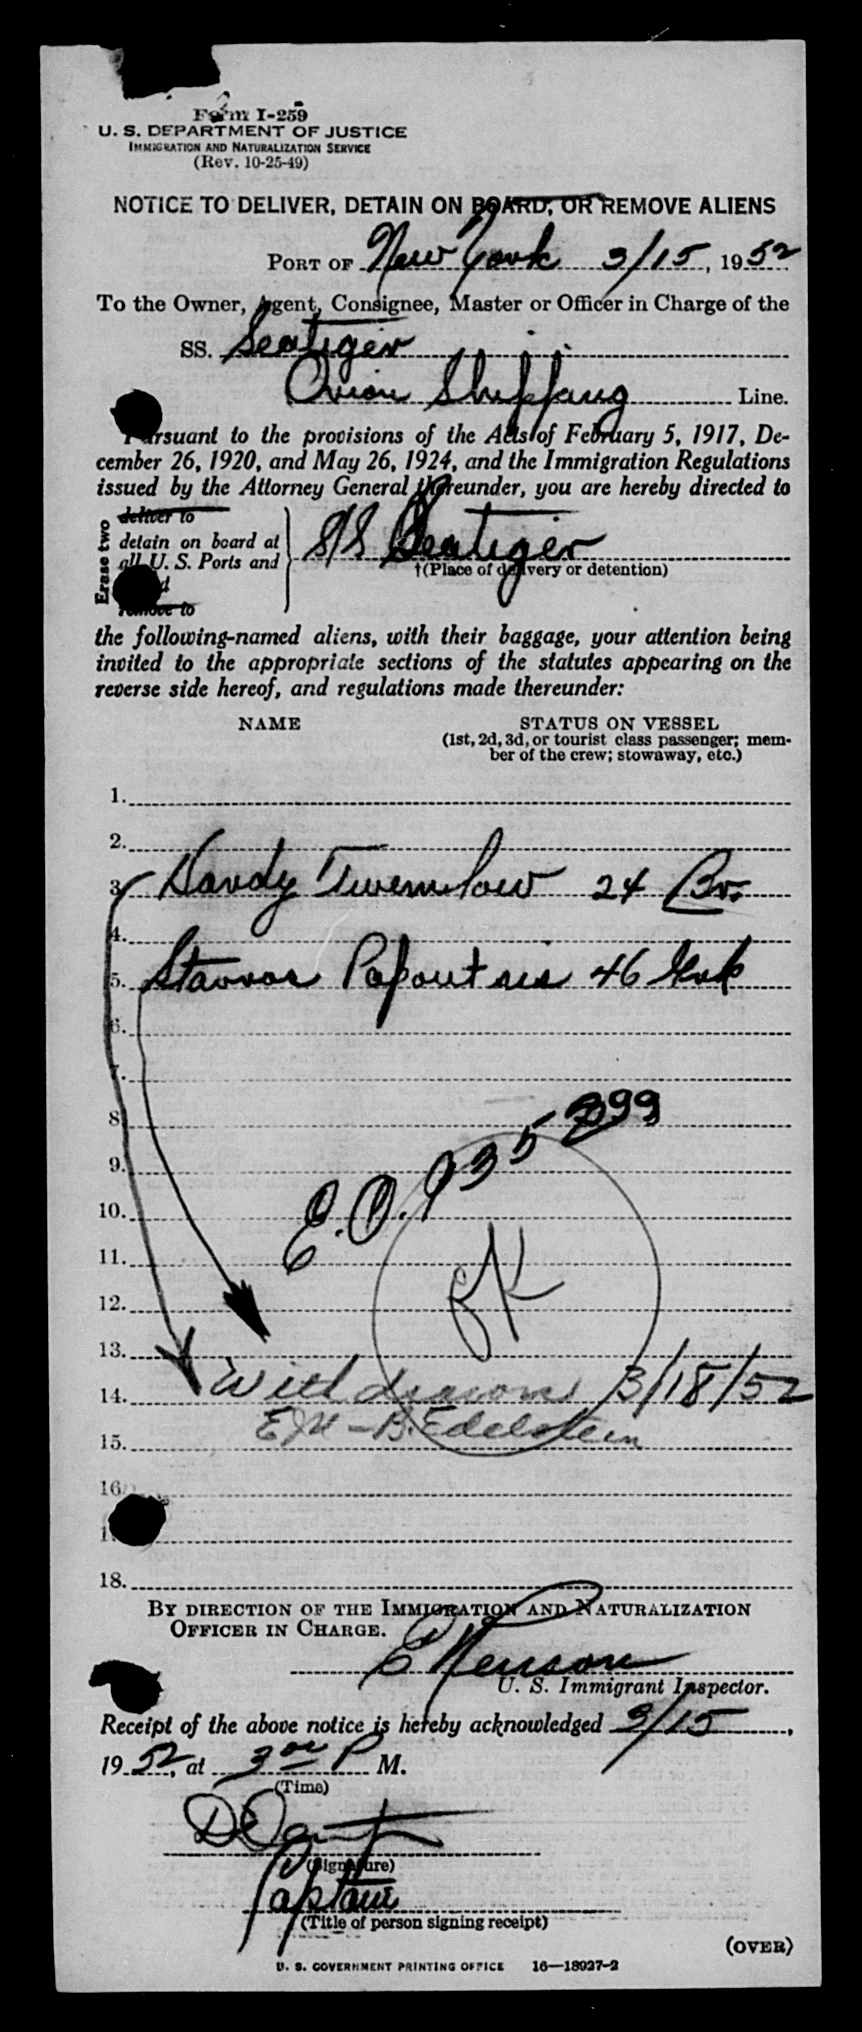 Form I-259
U. S. DEPARTMENT OF JUSTICE
IMMIGRATION AND NATURALIZATION SERVICE
(Rev. 10-25-49)
NOTICE TO DELIVER, DETAIN ON BOARD, OR REMOVE ALIENS
PORT OF New York 3/15, 1952
To the Owner, Agent, Consignee, Master or Officer in Charge of the
SS. Seatiger
Orion Shipping Line.
Pursuant to the provisions of the Acts of February 5, 1917, De-
cember 26, 1920, and May 26, 1924, and the Immigration Regulations
issued by the Attorney General thereunder, you are hereby directed to
Erase two
deliver to
detain on board at
all U. S. Ports and
remove to
S/S Seatiger
†(Place of delivery or detention)
the following-named aliens, with their baggage, your attention being
invited to the appropriate sections of the statutes appearing on the
reverse side hereof, and regulations made thereunder:
NAME STATUS ON VESSEL
(1st, 2d, 3d, or tourist class passenger; mem-
ber of the crew; stowaway, etc.)
1.
2.
3. Handy Twemlow 24 Br.
4.
5. Stavros Papoutsis 46 Grk
6.
7.
8.
9.
E.O. 9352
10.
11.
12.
13.
14. Withdrawn 3/18/52
B. Edelstein
15.
16.
18.
BY DIRECTION OF THE IMMIGRATION AND NATURALIZATION
OFFICER IN CHARGE.
U. S. Immigrant Inspector.
Receipt of the above notice is hereby acknowledged 3/15,
1952, at 3 00 P M.
(Time)
(Signature)
Captain
(Title of person signing receipt)
(OVER)
U. S. GOVERNMENT PRINTING OFFICE 16—18927-2